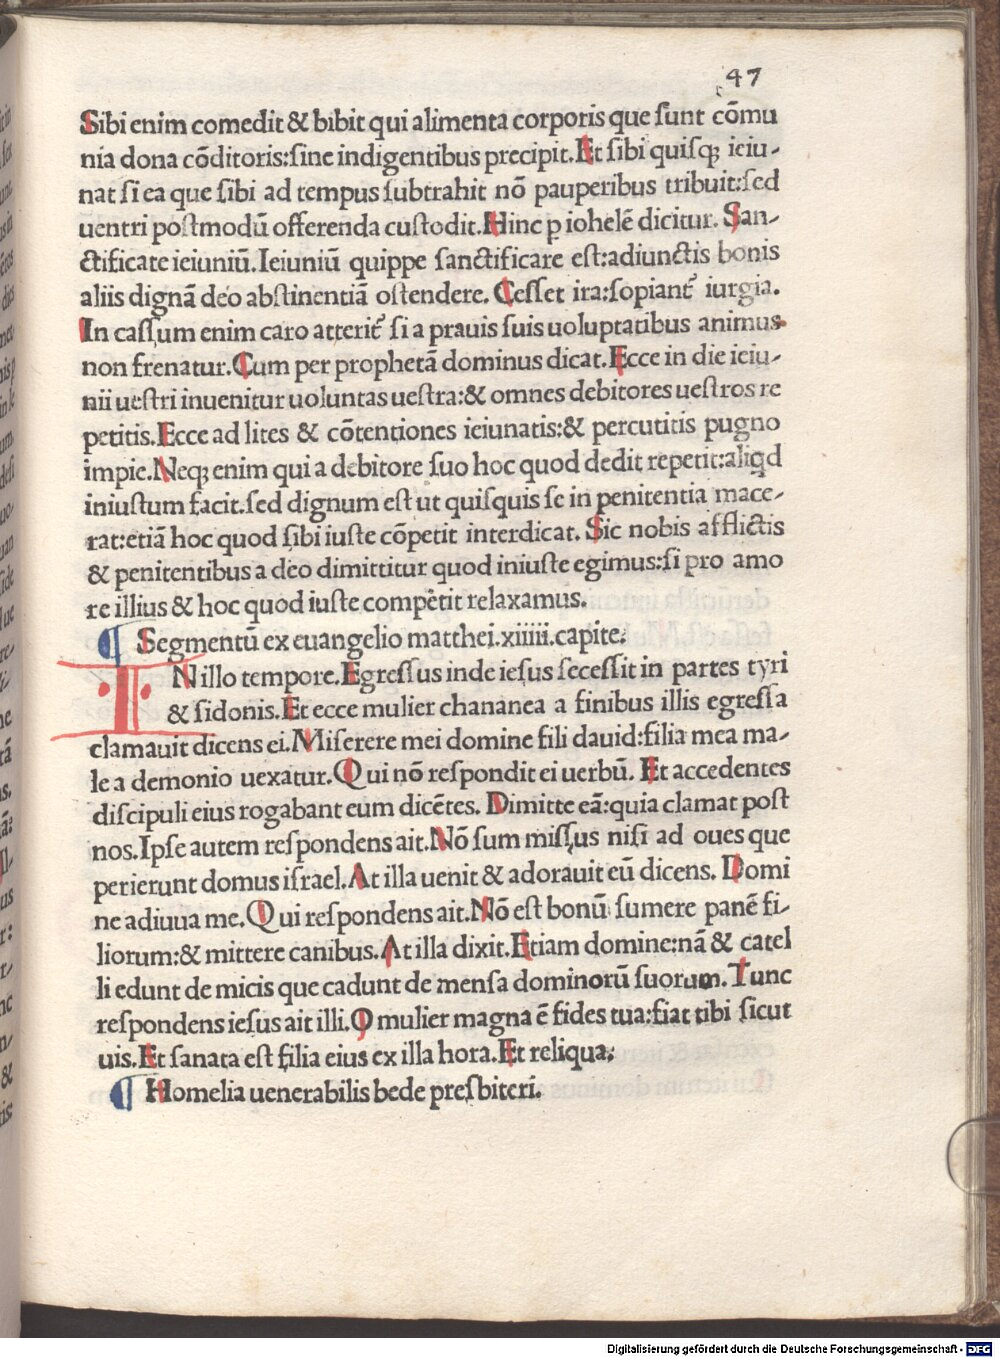 47
Sibi enim comedit & bibit qui alimenta corporis que sunt cōmu
nia dona cōditoris:sine indigentibus precipit.Et sibi quisqꝫ ieiu-
nat si ea que sibi ad tempus subtrahit nō pauperibus tribuit:sed
uentri postmodū offerenda custodit.Hinc p iohelē dicitur. San-
ctificate ieiuniū.Ieiuniū quippe sanctificare est:adiunctis bonis
aliis dignā deo abstinentiā ostendere. Cesset ira:sopiant᷑ iurgia.
In cassum enim caro atterit᷑ si a prauis suis uoluptatibus animus
non frenatur.Cum per prophetā dominus dicat.Ecce in die ieiu-
nii uestri inuenitur uoluntas uestra:& omnes debitores uestros re
petitis.Ecce ad lites & cōtentiones ieiunatis:& percutitis pugno
impie.Neqꝫ enim qui a debitore suo hoc quod dedit repetit:aliqd
iniustum facit.sed dignum est ut quisquis se in penitentia mace-
rat:etiā hoc quod sibi iuste cōpetit interdicat. Sic nobis afflictis
& penitentibus a deo dimittitur quod iniuste egimus:si pro amo
re illius & hoc quod iuste competit relaxamus.
¶ Segmentū ex euangelio matthei.xiiiii.capite.
IN illo tempore.Egressus inde iesus secessit in partes tyri
& sidonis.Et ecce mulier chananea a finibus illis egressa
clamauit dicens ei.Miserere mei domine fili dauid:filia mea ma-
le a demonio uexatur.Qui nō respondit ei uerbū. Et accedentes
discipuli eius rogabant eum dicētes. Dimitte eā:quia clamat post
nos.Ipse autem respondens ait.Nō sum missus nisi ad oues que
perierunt domus israel.At illa uenit & adorauit eū dicens. Domi
ne adiuua me.Qui respondens ait.Nō est bonū sumere panē fi-
liorum:& mittere canibus.At illa dixit.Etiam domine:nā & catel
li edunt de micis que cadunt de mensa dominorū suorum.Tunc
respondens iesus ait illi.O mulier magna ē fides tua:fiat tibi sicut
uis.Et sanata est filia eius ex illa hora.Et reliqua;
¶ Homelia uenerabilis bede presbiteri.
Digitalisierung gefördert durch die Deutsche Forschungsgemeinschaft - DFG